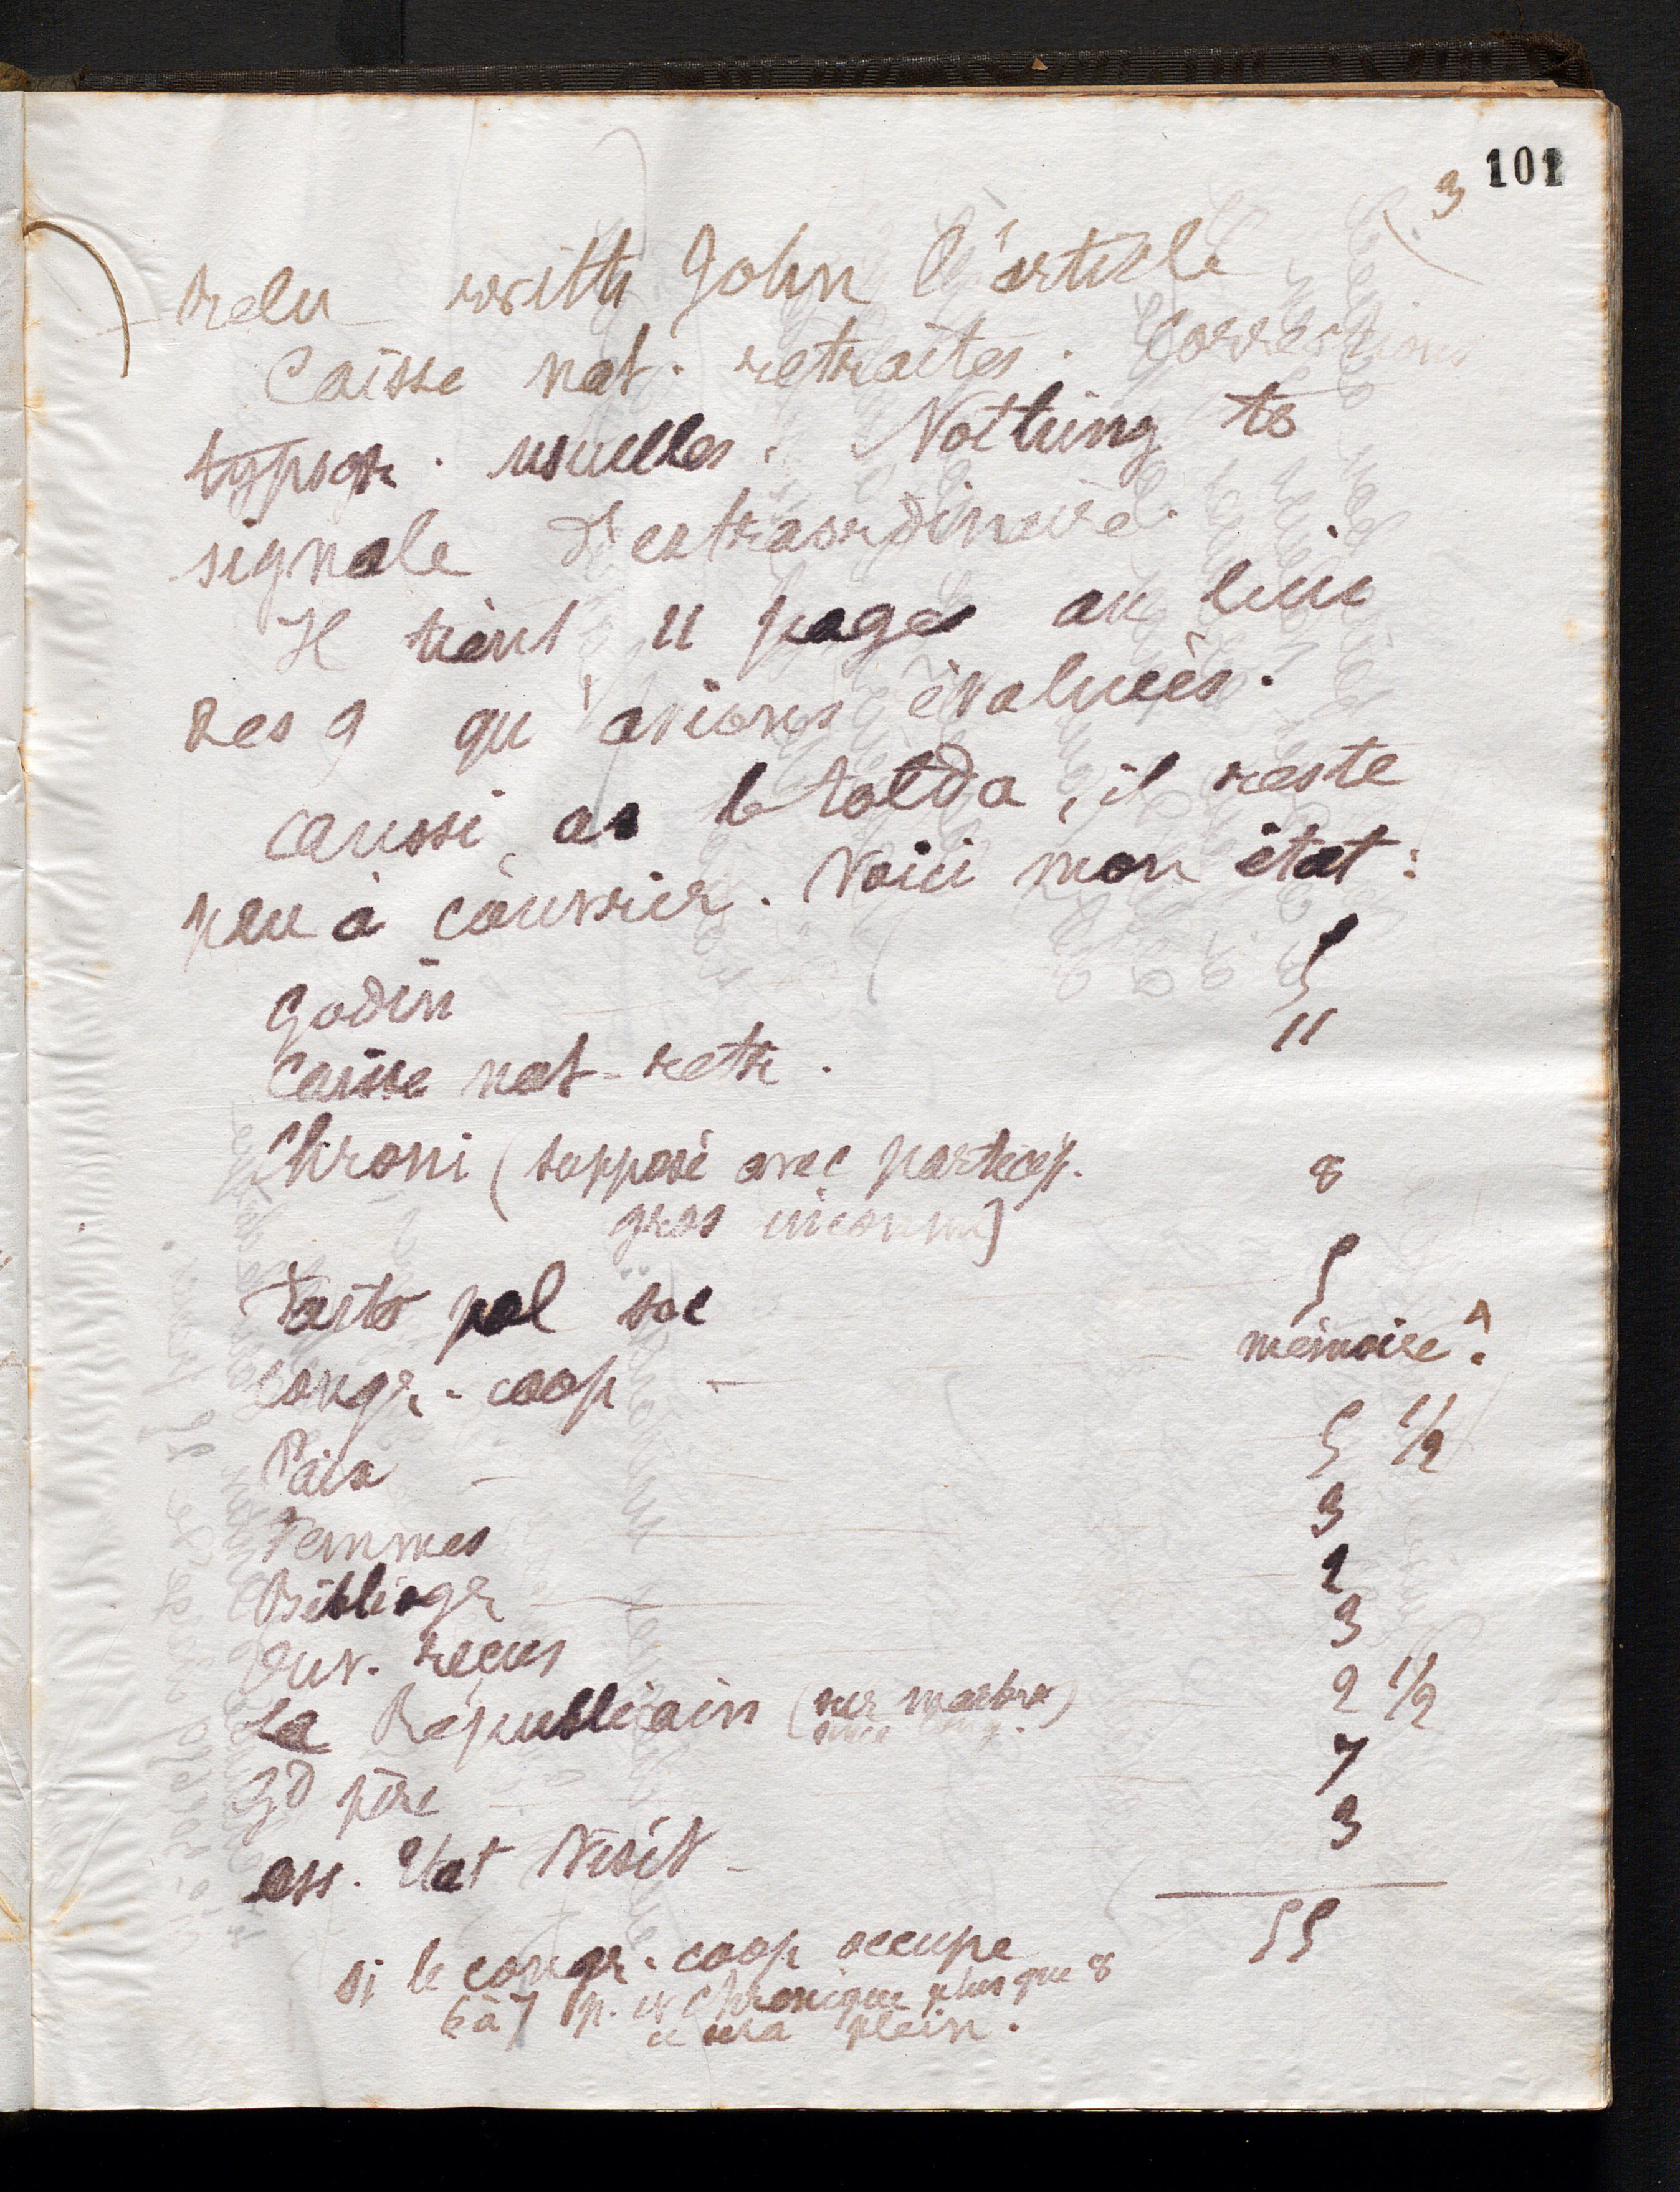 101
3
relu with John l'article
Caisse nat. retraites. Corrections
typogr. usuelles. Nothing to
signale d'extraordinaire.
Il tient 11 pages au lieu
des 9 qu'avions évaluées.
aussi, as le told a, il reste
peu à couvrir. Voici mon état :
Godin 5
Caisse nat-retr. 11
Chroni (supposé avec particip. 8
gros inconnu)
Faits pol soc 5
congr. coop - mémoire ?
Paix - 5 1/2
Femmes 3
Bibliogr 2
Ouv. reçus 3
Le Républicain (sur marbre) 2 1/2
Gd père 7
ass. Uat Visit - 3
55
si le congr. coop occupe
6 à 7 p. et chronique plus que 8
ce sera plein.